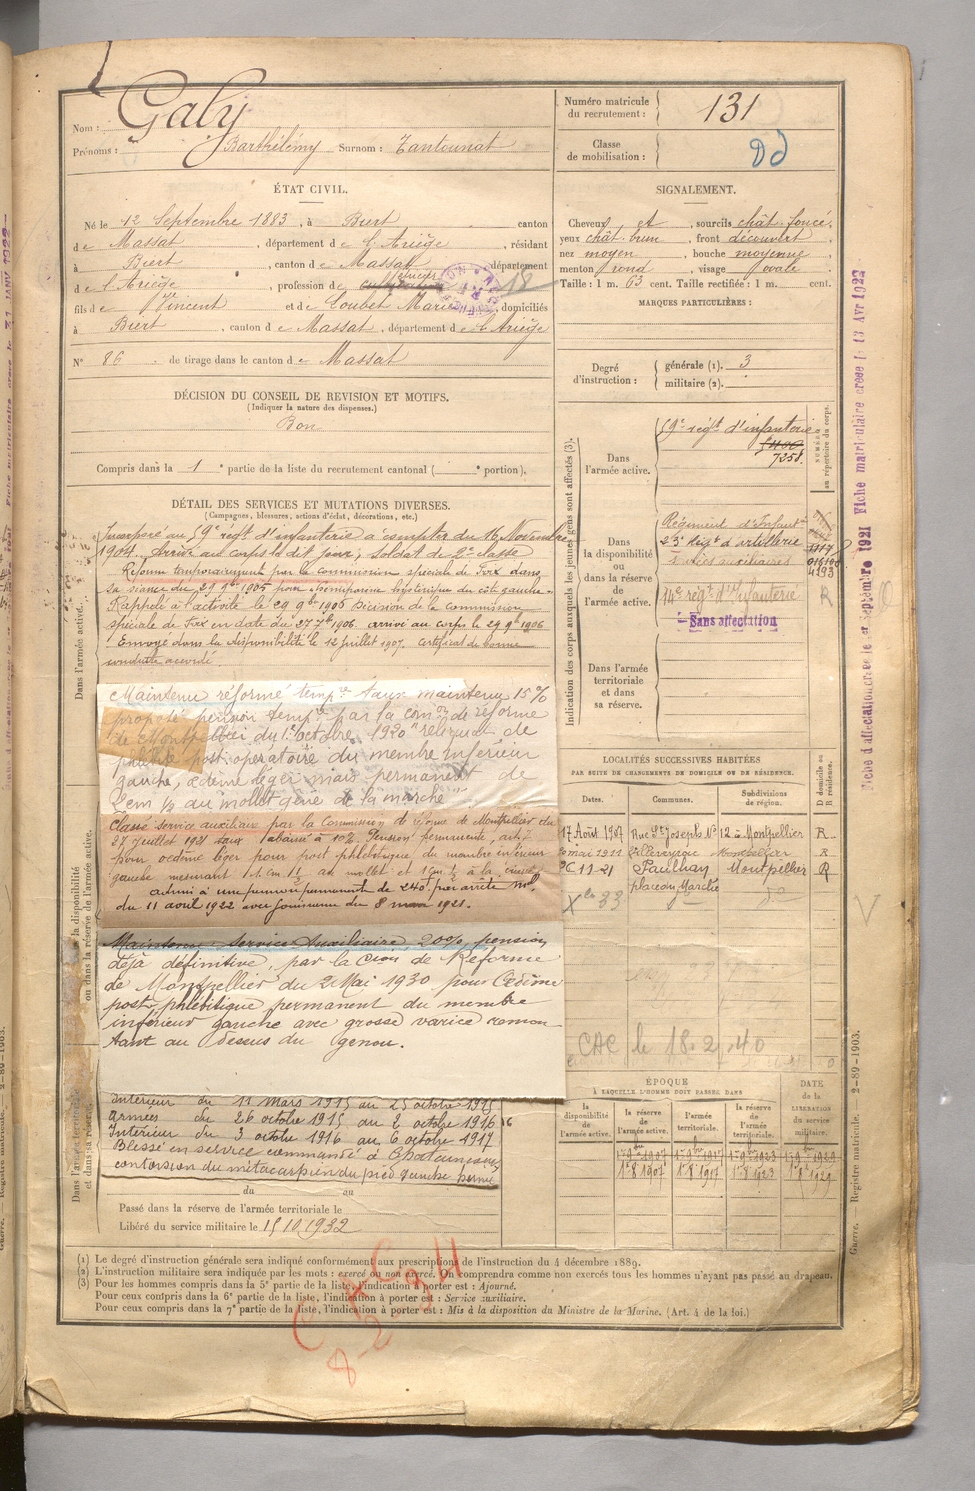 Nom : Galy
Prénoms : Barthélémy Surnom : Tantounat
Numéro matricule du recrutement : 131
Classe de mobilisation :
ÉTAT CIVIL.
Né le 12 Septembre 1883, à Biert canton
de Massat, département de l'Ariège, résidant
à Biert, canton de Massat, département
de l'Ariège, profession de
fils de Vincent et de Loubet Marie, domiciliés
à Biert, canton de Massat, département de l'Ariège
N° 86 de tirage dans le canton de Massat
SIGNALEMENT.
Cheveux et sourcils chât. foncé
yeux chât. brun, front découvert,
nez moyen, bouche moyenne
menton rond, visage ovale
Taille : 1 m. 63 cent. Taille rectifiée : 1 m. cent.
MARQUES PARTICULIÈRES :
Degré d'instruction : générale (1). 3
militaire (2).
DÉCISION DU CONSEIL DE REVISION ET MOTIFS.
(Indiquer la nature des dispenses.)
Bon
Compris dans la 1e partie de la liste du recrutement cantonal ( e portion).
DÉTAIL DES SERVICES ET MUTATIONS DIVERSES.
(Campagnes, blessures, actions d'éclat, décorations, etc.)
Incorporé au 59e régt d'infanterie à compter du 16 Novembre
1904. Arrivé au corps le dit jour, soldat de 2e classe
Réformé temporairement par la commission spéciale de Foix dans
sa séance du 29 9bre 1905 pour hystérique du côté gauche.
Rappelé à l'activité le 29 9bre 1906 Décision de la Commission
spéciale de Foix en date du 27 7bre 1906. arrivé au corps le 29 9bre 1906
Envoyé dans la disponibilité le 12 juillet 1907. certificat de bonne
conduite accordé.
Maintenu réformé tempre taux maintenu 15 %
proposé pension tempre par la comon de réforme
de Montpellier du 1er octobre 1920 "reliquat de
phlébite post-opératoire du membre inférieur
gauche, œdème léger mais permanent de
2cm ½ au mollet gêne de la marche"
Classé service auxiliaire par la Commission de réforme de Montpellier du
27 juillet 1921 taux abaissé à 10% Pension permanente,
pour œdème léger pour post phlébitique du membre inférieur
gauche mesurant au mollet à la
admis à une pension permanente de 240f par arrêté mel
du 11 août 1922 avec jouissance du 8 mars 1921.
Maintenu Service Auxiliaire, 20%, pension
déjà définitive, par la Cion de Réforme
de Montpellier du 2 Mai 1930 pour Œdème
post-phlébitique permanent du membre
inférieur gauche avec grosse varice remon-
tant au dessus du genou.
Intérieur du 11 mars 1915 au 25 octobre 1915
Armées du 26 octobre 1915 au 2 octobre 1916
Intérieur du 3 octobre 1916 au 6 octobre 1917
Blessé en service commandé à
contorsion du métacarpien du pied gauche
du au
Passé dans la réserve de l'armée territoriale le
Libéré du service militaire le 15 10 1932
Dans l'armée active.
la disponibilité ou dans la réserve de l'armée active.
Dans l'armée territoriale et dans sa réserve.
Indication des corps auxquels les jeunes gens sont affectés (3).
NUMÉRO au répertoire du corps.
Dans l'armée active.
59e régt d'infanterie
7258.
Dans la disponibilité ou dans la réserve de l'armée active.
Régiment d'Infant
23e Régt d'artillerie
services auxiliaires
14e régt d'Infanterie
R
Sans affectation
Dans l'armée territoriale et dans sa réserve.
LOCALITÉS SUCCESSIVES HABITÉES
PAR SUITE DE CHANGEMENTS DE DOMICILE OU DE RÉSIDENCE.
Dates. Communes. Subdivisions de région. D domicile ou R résidence.
17 Août 1907 Rue St Joseph No 12 à Montpellier R
mai 1911 Villeveyrac Montpellier R
Paulhan Montpellier R
place du Marché
CAC le 18.2.40
ÉPOQUE
À LAQUELLE L'HOMME DOIT PASSER DANS
DATE de la LIBÉRATION du service militaire.
la disponibilité de l'armée active. la réserve de l'armée active. l'armée territoriale. la réserve de l'armée territoriale.
1er 8bre 1907 1er 8bre 1917 1er 8bre 1923 1er 8bre 1929
(1) Le degré d'instruction générale sera indiqué conformément aux prescriptions de l'instruction du 4 décembre 1889.
(2) L'instruction militaire sera indiquée par les mots : exercé ou non exercé. On comprendra comme non exercés tous les hommes n'ayant pas passé au drapeau.
(3) Pour les hommes compris dans la 5e partie de la liste, l'indication à porter est : Ajourné.
Pour ceux compris dans la 6e partie de la liste, l'indication à porter est : Service auxiliaire.
Pour ceux compris dans la 7e partie de la liste, l'indication à porter est : Mis à la disposition du Ministre de la Marine. (Art. 4 de la loi.)
Guerre. — Registre matricule. — 2-89-1903.
Fiche d'affectation créée le 1er Septembre 1921 Fiche matriculaire créée le 13 Avr 1922